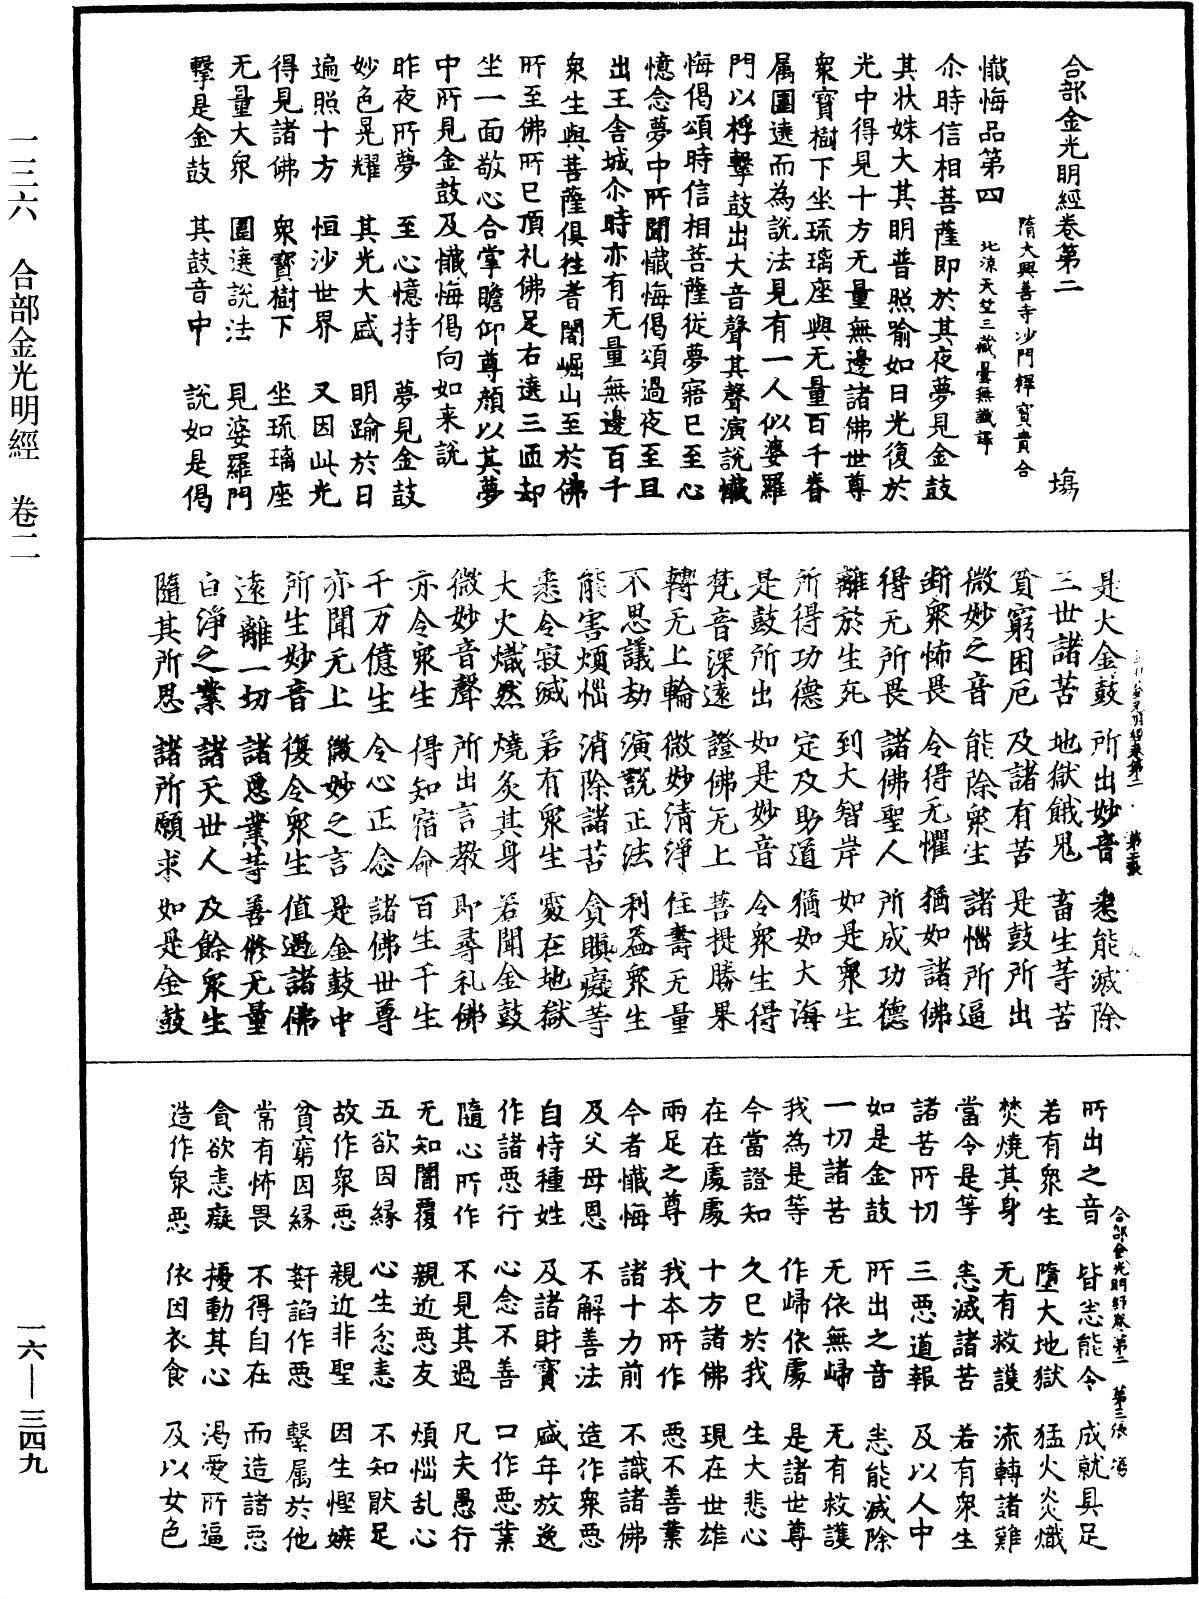 合部金光明經卷第二　塲
隋大興善寺沙門釋寶貴合
北涼天竺三藏曇無讖譯
懺悔品第四
尒時信相菩薩即於其夜夢見金鼓
其狀姝大其明普照踰如日光復於
光中得見十方无量無邊諸佛世尊
衆寶樹下坐琉璃座與无量百千眷
属圍遶而為說法見有一人似婆羅
門以桴擊鼓出大音聲其聲演說懺
悔偈頌時信相菩薩從夢寤已至心
憶念夢中所聞懺悔偈頌過夜至旦
出王舍城尒時亦有无量無邊百千
衆生與菩薩俱往耆闍崛山至於佛
所至佛所已頂礼佛足右遶三匝却
坐一面敬心合掌瞻仰尊顔以其夢
中所見金鼓及懺悔偈向如来說
昨夜所夢　至心憶持　夢見金鼓
妙色晃耀　其光大盛　明踰於日
遍照十方　恒沙世界　又因此光
得見諸佛　衆寶樹下　坐琉璃座
无量大衆　圍遶說法　見婆羅門
擊是金鼓　其鼓音中　說如是偈
是大金鼓　所出妙音　悉能滅除
三世諸苦　地獄餓鬼　畜生等苦
貧窮困厄　及諸有苦　是鼓所出
微妙之音　能除衆生　諸惱所逼
断衆怖畏　令得无懼　猶如諸佛
得无所畏　諸佛聖人　所成功德
離於生死　到大智岸　如是衆生
所得功德　定及助道　猶如大海
是鼓所出　如是妙音　令衆生得
梵音深遠　證佛无上　菩提勝果
轉无上輪　微妙清淨　住壽无量
不思議劫　演說正法　利益衆生
能害煩惱　消除諸苦　貪瞋癡等
悉令寂滅　若有衆生　處在地獄
大火熾然　燒炙其身　若聞金鼓
微妙音聲　所出言教　即尋礼佛
亦令衆生　得知宿命　百生千生
千万億生　令心正念　諸佛世尊
亦聞无上　微妙之言　是金鼓中
所生妙音　復令衆生　值遇諸佛
遠離一切　諸惡業等　善修无量
白淨之業　諸天世人　及餘衆生
隨其所思　諸所願求　如是金鼓
合部金光明經卷第二　第三張　塲
所出之音　皆悉能令　成就具足
若有衆生　墮大地獄　猛火炎熾
焚燒其身　无有救護　流轉諸難
當令是等　悉滅諸苦　若有衆生
諸苦所切　三悪道報　及以人中
如是金鼓　所出之音　悉能滅除
一切諸苦　无依無歸　无有救護
我為是等　作歸依處　是諸世尊
今當證知　久已於我　生大悲心
在在處處　十方諸佛　現在世雄
兩足之尊　我本所作　悪不善業
今者懺悔　諸十力前　不識諸佛
及父母恩　不解善法　造作衆悪
自恃種姓　及諸財寶　盛年放逸
作諸悪行　心念不善　口作悪業
隨心所作　不見其過　凡夫愚行
无知闇覆　親近悪友　煩惱乱心
五欲因縁　心生忿恚　不知猒足
故作衆悪　親近非聖　因生慳嫉
貧窮因縁　姧諂作悪　繫属於他
常有怖畏　不得自在　而造諸悪
貪欲恚癡　擾動其心　渇愛所逼
造作衆悪　依因衣食　及以女色
一三三六　合部金光明經　卷二
一六—三四九